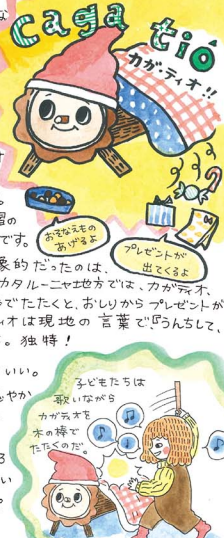 caga tió
カガ・ティオ!!
おそなえもの
あげるよ
プレゼントが
出てくるよ
象的だったのは、
カタルーニャ地方では、カガティオ、
でたたくと、おしりからプレゼントが
ィオは現地の言葉で『うんちして、
。独特!
子どもたちは
歌いながら
カガティオを
木の棒で
たたくのだ。
いい。
やか